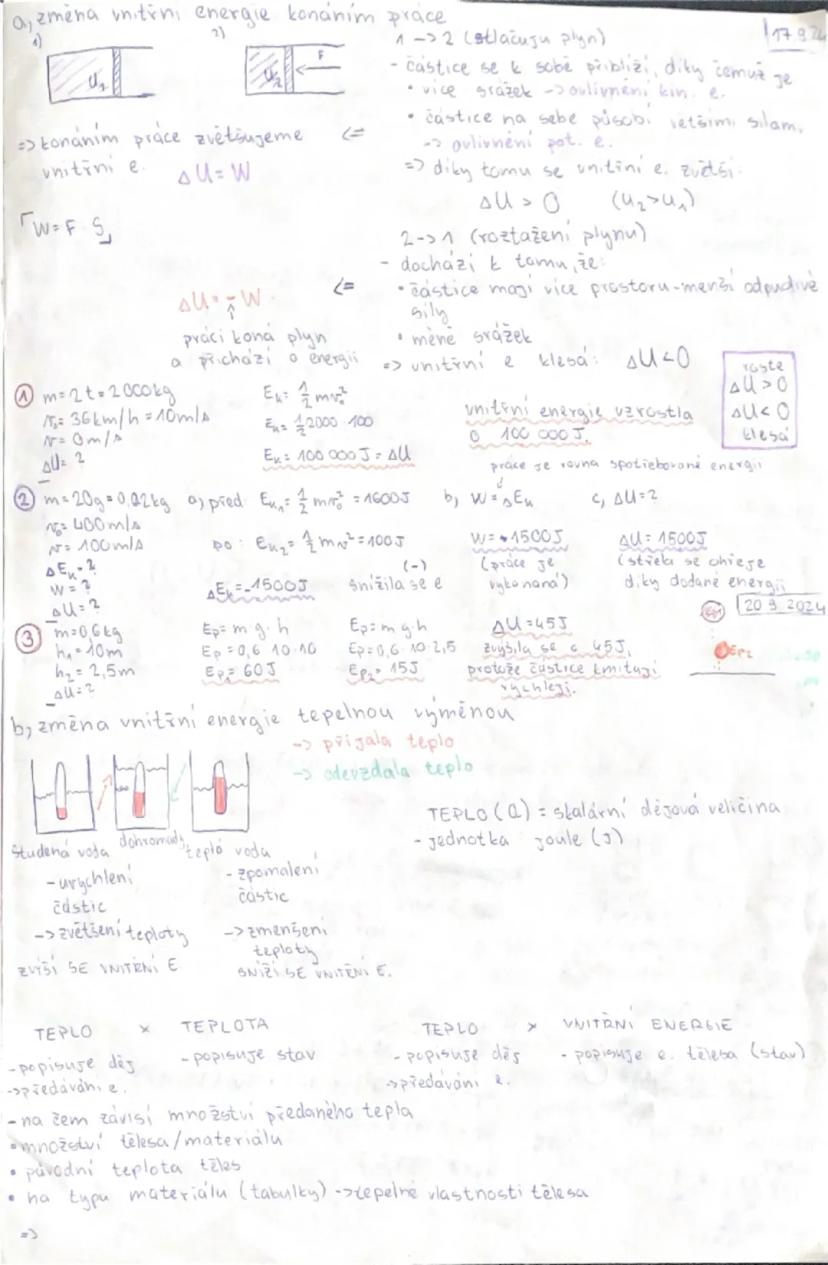 a, změna vnitřní energie konáním práce
17.9.24
1)
2)
U1
U2
F
1 -> 2 (stlačuju plyn)
- částice se k sobě přiblíží, díky čemuž je
• více srážek -> ovlivnění kin. e.
• částice na sebe působí většími silam,
-> ovlivnění pot. e.
=> díky tomu se vnitřní e. zvětší:
ΔU > 0 (U2>U1)
=> konáním práce zvětšujeme <=
vnitřní e. ΔU = W
W = F · s
2 -> 1 (roztažení plynu)
- dochází k tomu, že:
• částice mají více prostoru - menší odpudivé
síly
• méně srážek
=> vnitřní e klesá: ΔU < 0
ΔU = -W <=
práci koná plyn
a přichází o energii
roste
ΔU > 0
ΔU < 0
klesá
1 m = 2 t = 2000 kg
v0 = 36 km/h = 10 m/s
v = 0 m/s
ΔU = ?
Ek = 1/2 mv0²
Ek = 1/2 2000 · 100
Ek = 100 000 J = ΔU
vnitřní energie vzrostla
o 100 000 J.
práce je rovna spotřebované energii
2 m = 20g = 0,02 kg
v0 = 400 m/s
v = 100 m/s
ΔEk = ?
W = ?
ΔU = ?
a, před Ek1 = 1/2 mv0² = 1600 J
po: Ek2 = 1/2 mv² = 100 J
(-)
ΔEk = -1500 J snížila se e
b, W = ΔEk
W = +1500 J
(práce je
vykonaná)
c, ΔU = ?
ΔU = 1500 J
(střela se ohřeje
díky dodané energii
20.9.2024
3 m = 0,6 kg
h1 = 10m
h2 = 2,5m
ΔU = ?
Ep = m · g · h
Ep = 0,6 · 10 · 10
Ep1 = 60 J
Ep = m · g · h
Ep = 0,6 · 10 · 2,5
Ep2 = 15 J
ΔU = 45 J
zvýšila se o 45 J,
protože částice kmitají
rychleji.
Ep1
Ep2
b, změna vnitřní energie tepelnou výměnou
-> přijala teplo
-> odevzdala teplo
studená voda
dohromady
teplá voda
- urychlení
částic
-> zvětšení teploty
ZVÝŠÍ SE VNITŘNÍ E
- zpomalení
částic
-> zmenšení
teploty
SNÍŽÍ SE VNITŘNÍ E.
TEPLO (Q) = skalární dějová veličina
- jednotka joule (J)
TEPLO × TEPLOTA
- popisuje děj - popisuje stav
-> předávání e.
TEPLO × VNITŘNÍ ENERGIE
- popisuje děj - popisuje e. tělesa (stav)
-> předávání e.
- na čem závisí množství předaného tepla
• množství tělesa/materiálu
• původní teplota těles
• na typu materiálu (tabulky) -> tepelné vlastnosti tělesa
=>